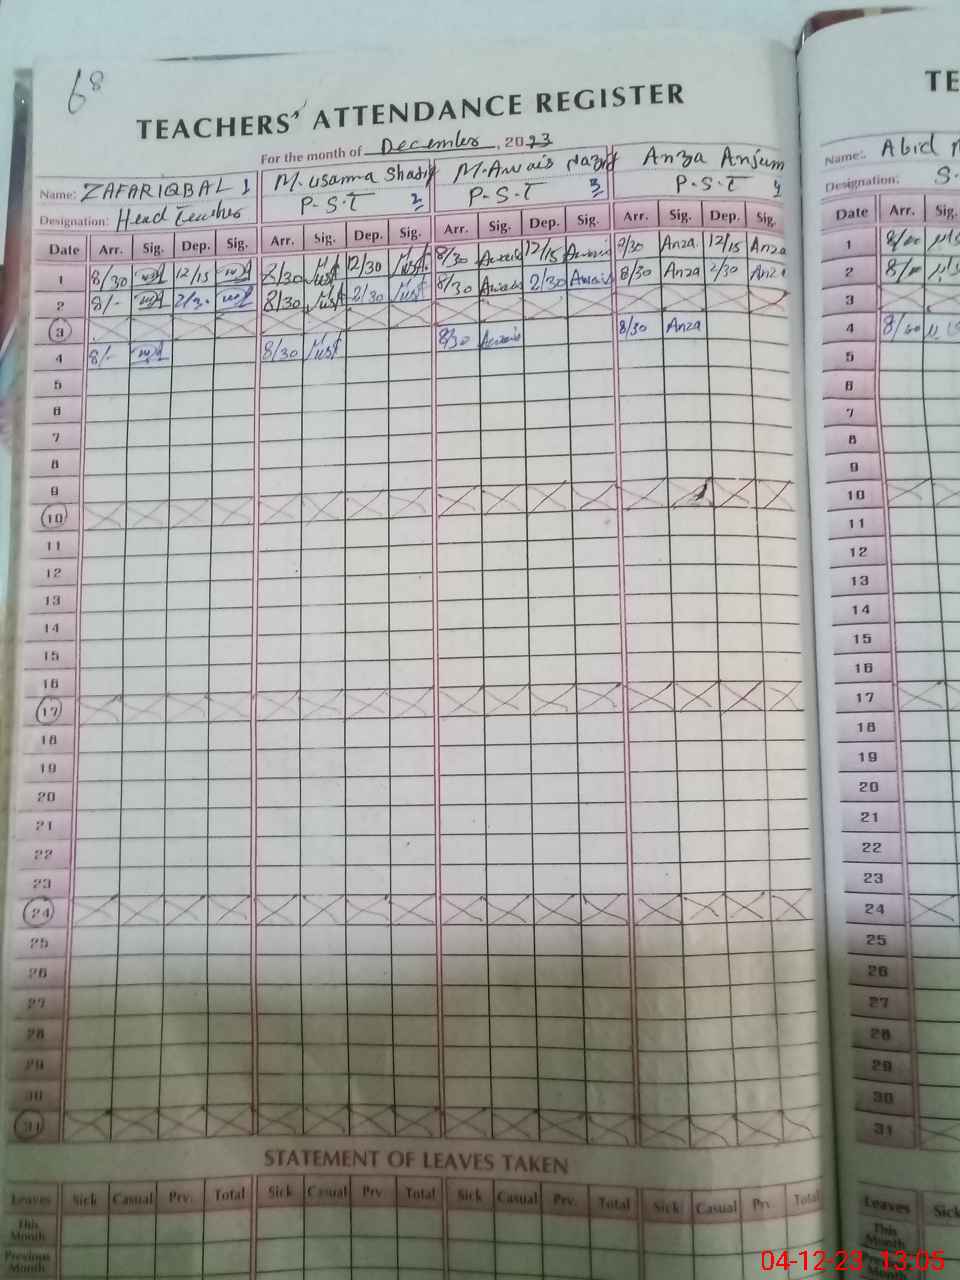 68
TEACHERS' ATTENDANCE REGISTER
For the month of December, 2023
Name: ZAFAR IQBAL 1 M. Usama Shafiq M. Awais Nazir Anza Anjum
Designation: Head Teacher P-S-T 2 P-S-T 3 P-S-T 4
Date Arr. Sig. Dep. Sig. Arr. Sig. Dep. Sig. Arr. Sig. Dep. Sig. Arr. Sig. Dep. Sig.
1 8/30 12/15 8/30 12/30 8/30 Awais 12/15 Awais 8/30 Anza 12/15 Anza
2 8/- 2/30 8/30 2/30 8/30 Awais 2/30 Awais 8/30 Anza 2/30 Anza
3
4 8/- 8/30 8/30 Awais 8/30 Anza
5
6
7
8
9
10
11
12
13
14
15
16
17
18
19
20
21
22
23
24
25
26
27
28
29
30
31
STATEMENT OF LEAVES TAKEN
Leaves Sick Casual Prv. Total Sick Casual Prv Total Sick Casual Prv. Total Sick Casual Prv Total
This Month
Previous Month
TE
Name: Abid
Designation: S.
Date Arr. Sig.
1 8/00
2 8/00
3
4 8/00
5
6
7
8
9
10
11
12
13
14
15
16
17
18
19
20
21
22
23
24
25
26
27
28
29
30
31
Leaves Sick
This Month
04-12-23 13:05